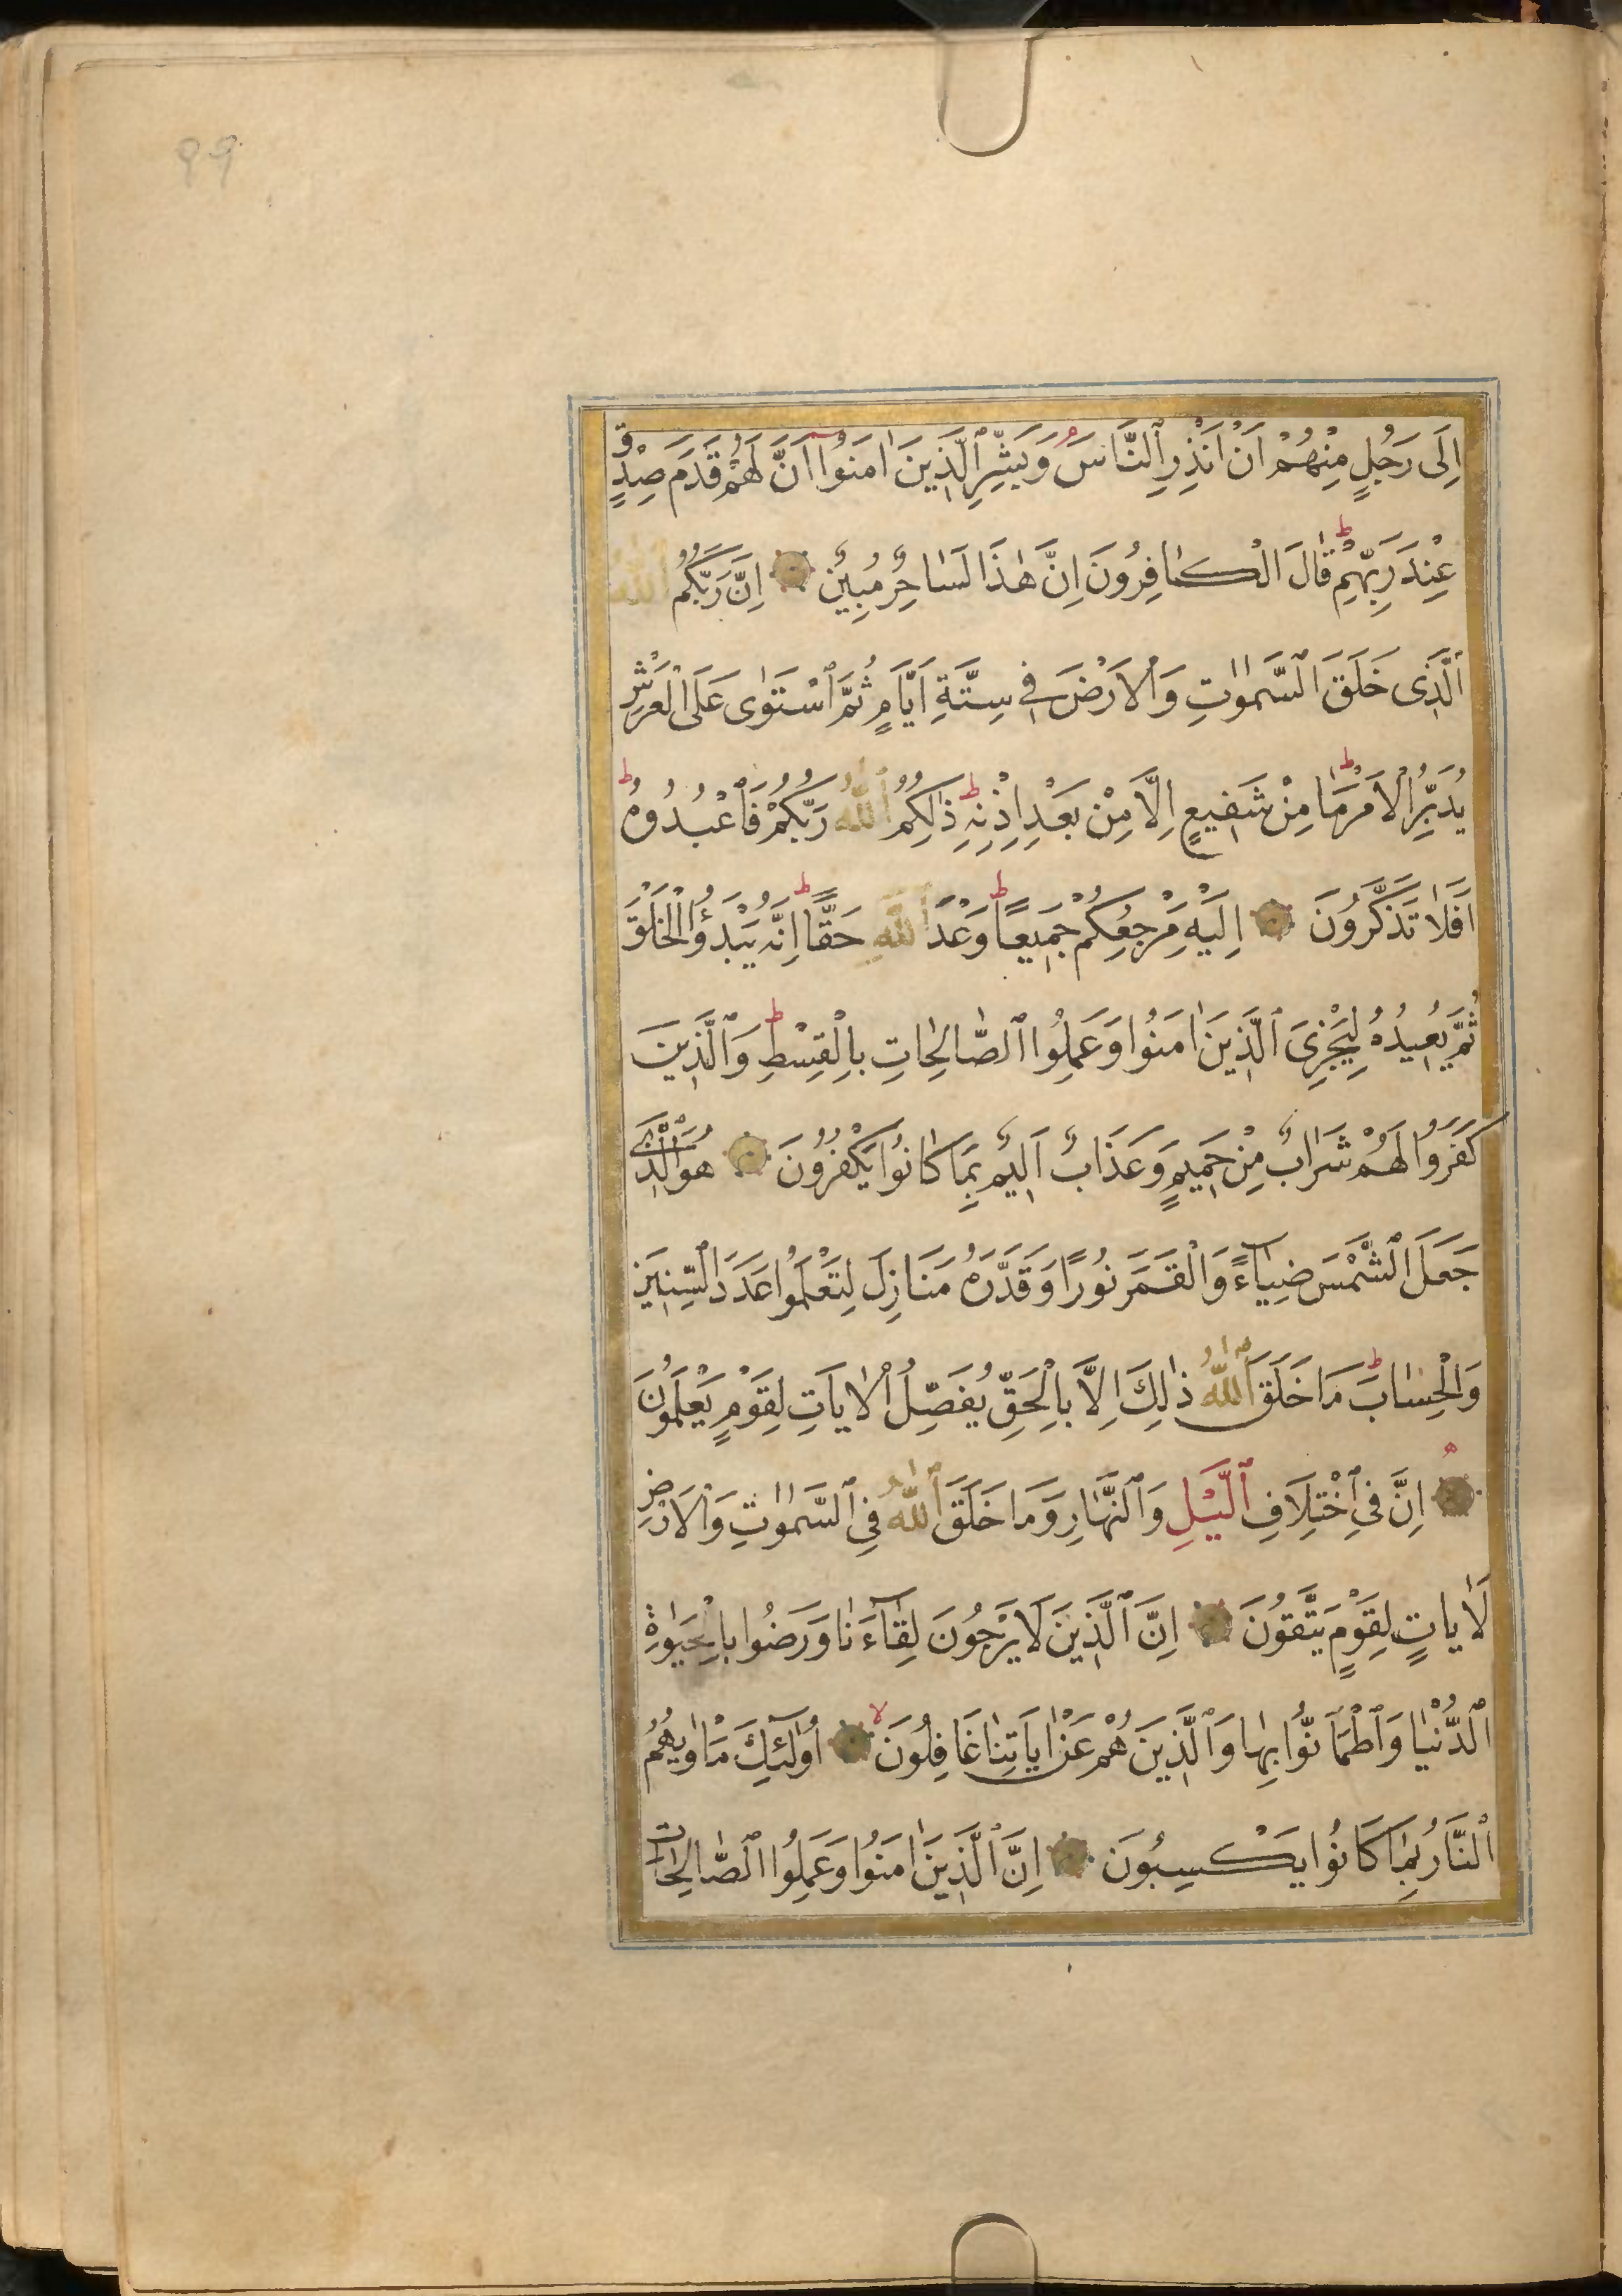 99
اِلَى رَجُلٍ مِنْهُمْ اَنْ اَنْذِرِ ٱلنَّاسَ وَبَشِّرِ ٱلَّذِينَ اٰمَنُوا اَنَّ لَهُمْ قَدَمَ صِدْقٍ
عِنْدَ رَبِّهِمْ ط قَالَ الْكَافِرُونَ اِنَّ هٰذَا لَسَاحِرٌ مُبِينٌ ۝ اِنَّ رَبَّكُمُ ٱللّٰهُ
ٱلَّذِى خَلَقَ ٱلسَّمٰوَاتِ وَٱلْاَرْضَ فِى سِتَّةِ اَيَّامٍ ثُمَّ ٱسْتَوٰى عَلَى الْعَرْشِ
يُدَبِّرُ الْاَمْرَ ط مَا مِنْ شَفِيعٍ اِلَّا مِنْ بَعْدِ اِذْنِهِ ط ذٰلِكُمُ ٱللّٰهُ رَبُّكُمْ فَٱعْبُدُوهُ ط
اَفَلَا تَذَكَّرُونَ ۝ اِلَيْهِ مَرْجِعُكُمْ جَمِيعًا ط وَعْدَ ٱللّٰهِ حَقًّا ط اِنَّهُ يَبْدَؤُا الْخَلْقَ
ثُمَّ يُعِيدُهُ لِيَجْزِىَ ٱلَّذِينَ اٰمَنُوا وَعَمِلُوا ٱلصَّالِحَاتِ بِالْقِسْطِ ط وَٱلَّذِينَ
كَفَرُوا لَهُمْ شَرَابٌ مِنْ حَمِيمٍ وَعَذَابٌ اَلِيمٌ بِمَا كَانُوا يَكْفُرُونَ ۝ هُوَ ٱلَّذِى
جَعَلَ ٱلشَّمْسَ ضِيَاءً وَالْقَمَرَ نُورًا وَقَدَّرَهُ مَنَازِلَ لِتَعْلَمُوا عَدَدَ ٱلسِّنِينَ
وَالْحِسَابَ ط مَا خَلَقَ ٱللّٰهُ ذٰلِكَ اِلَّا بِالْحَقِّ يُفَصِّلُ ٱلْاٰيَاتِ لِقَوْمٍ يَعْلَمُونَ
۝ اِنَّ فِى ٱخْتِلَافِ ٱلَّيْلِ وَٱلنَّهَارِ وَمَا خَلَقَ ٱللّٰهُ فِى ٱلسَّمٰوَاتِ وَٱلْاَرْضِ
لَاٰيَاتٍ لِقَوْمٍ يَتَّقُونَ ۝ اِنَّ ٱلَّذِينَ لَا يَرْجُونَ لِقَاۤءَنَا وَرَضُوا بِالْحَيٰوةِ
ٱلدُّنْيَا وَٱطْمَاَنُّوا بِهَا وَٱلَّذِينَ هُمْ عَنْ اٰيَاتِنَا غَافِلُونَ لا ۝ اُولٰۤئِكَ مَاْوٰيهُمُ
ٱلنَّارُ بِمَا كَانُوا يَكْسِبُونَ ۝ اِنَّ ٱلَّذِينَ اٰمَنُوا وَعَمِلُوا ٱلصَّالِحَاتِ